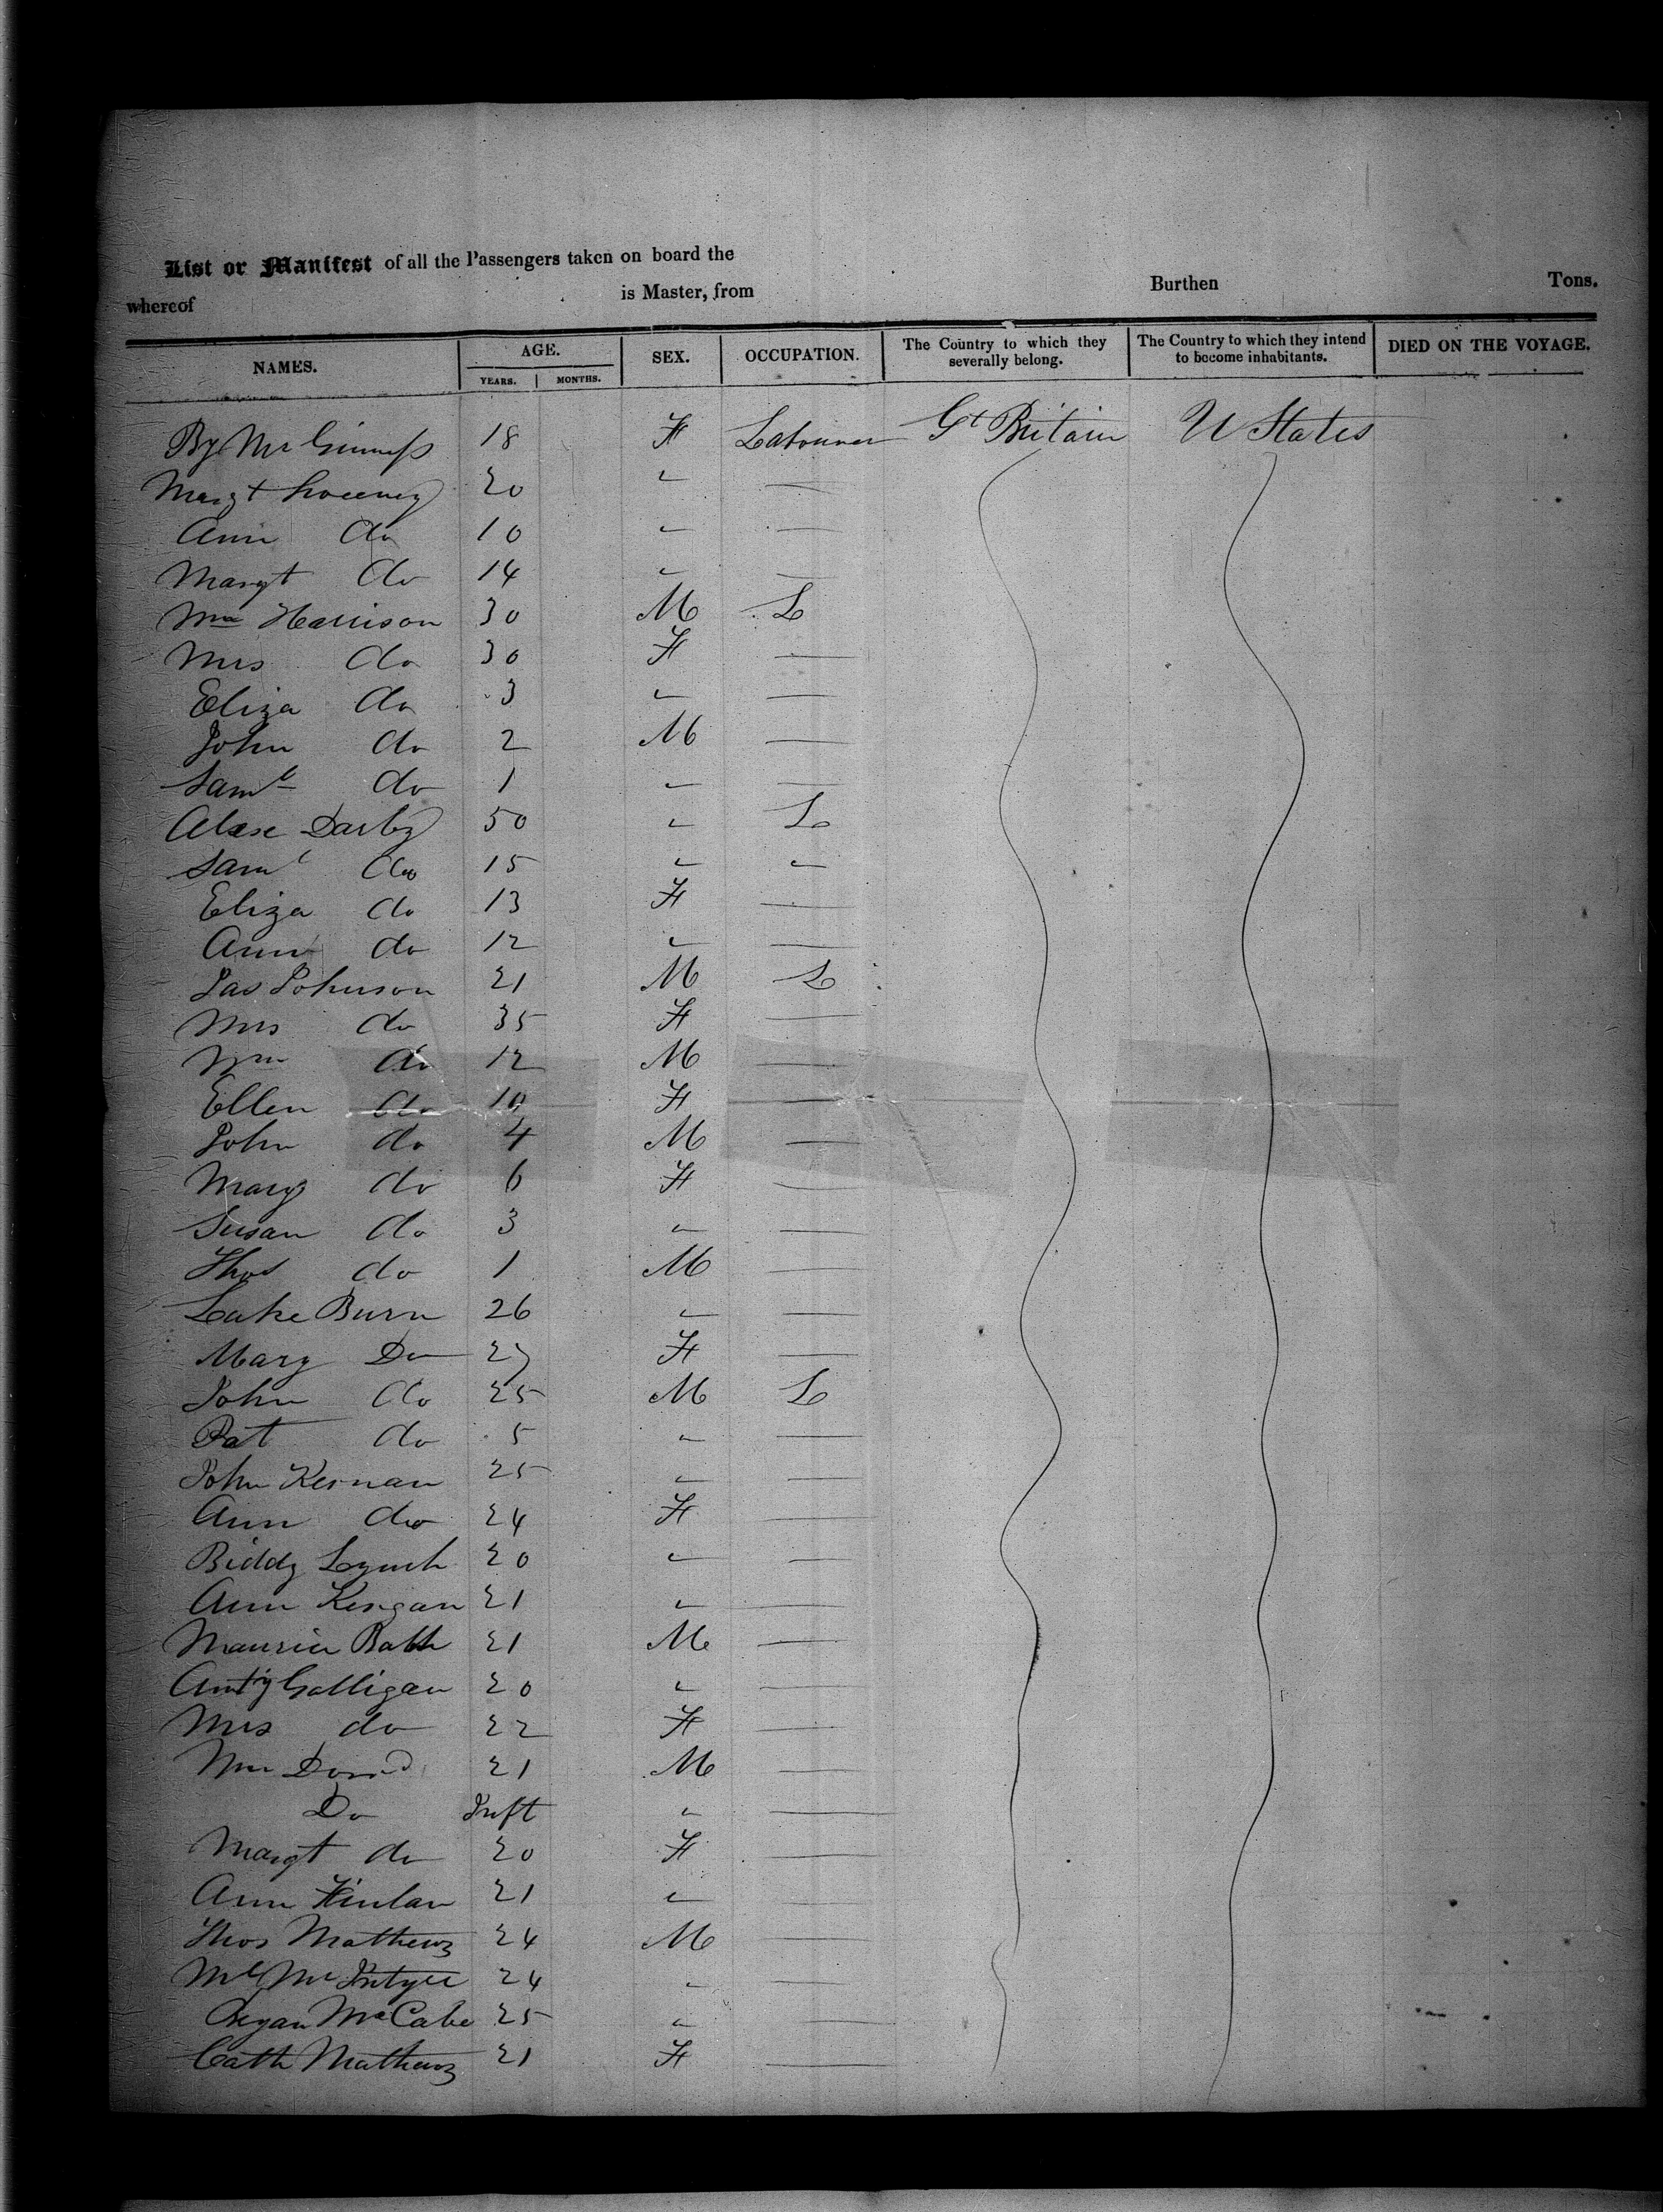 List or Manifest of all the Passengers taken on board the
whereof is Master, from Burthen Tons.
NAMES. AGE. SEX. OCCUPATION. The Country to which they severally belong. The Country to which they intend to become inhabitants. DIED ON THE VOYAGE.
YEARS. MONTHS.
By McGinness 18 F Labourer Gt Britain U States
Margt Sweeney 20 "
Ann do 10 "
Margt do 14 "
Wm Harrison 30 M L
Mrs do 30 F
Eliza do 3 "
John do 2 M
Saml do 1 "
Alexe Darby 50 " L
Saml do 15 " "
Eliza do 13 F
Ann do 12 "
Jas Johnson 21 M L
Mrs do 35 F
Wm do 12 M
Ellen do 10 F
John do 4 M
Mary do 6 F
Susan do 3 "
Thos do 1 M
Luke Burn 26 "
Mary Do 27 F
John do 25 M L
Pat do 5 "
John Kernan 25 "
Ann do 24 F
Biddy Lynch 20 "
Ann Kergan 21 "
Maurice Bath 21 M
Anty Galligan 20 "
Mrs do 22 F
Wm 21 M
Do Inft "
Margt do 20 F
Ann Finlan 21 "
Thos Mathews 24 M
Ml McIntyre 24 "
Bryan McCabe 25 "
Cath Mathews 21 F